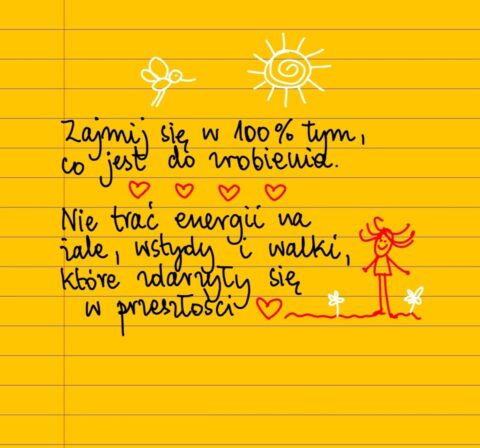 Zajmij się w 100% tym,
co jest do zrobienia.
Nie trać energii na
żale, wstydy i walki,
które zdarzyły się
w przeszłości